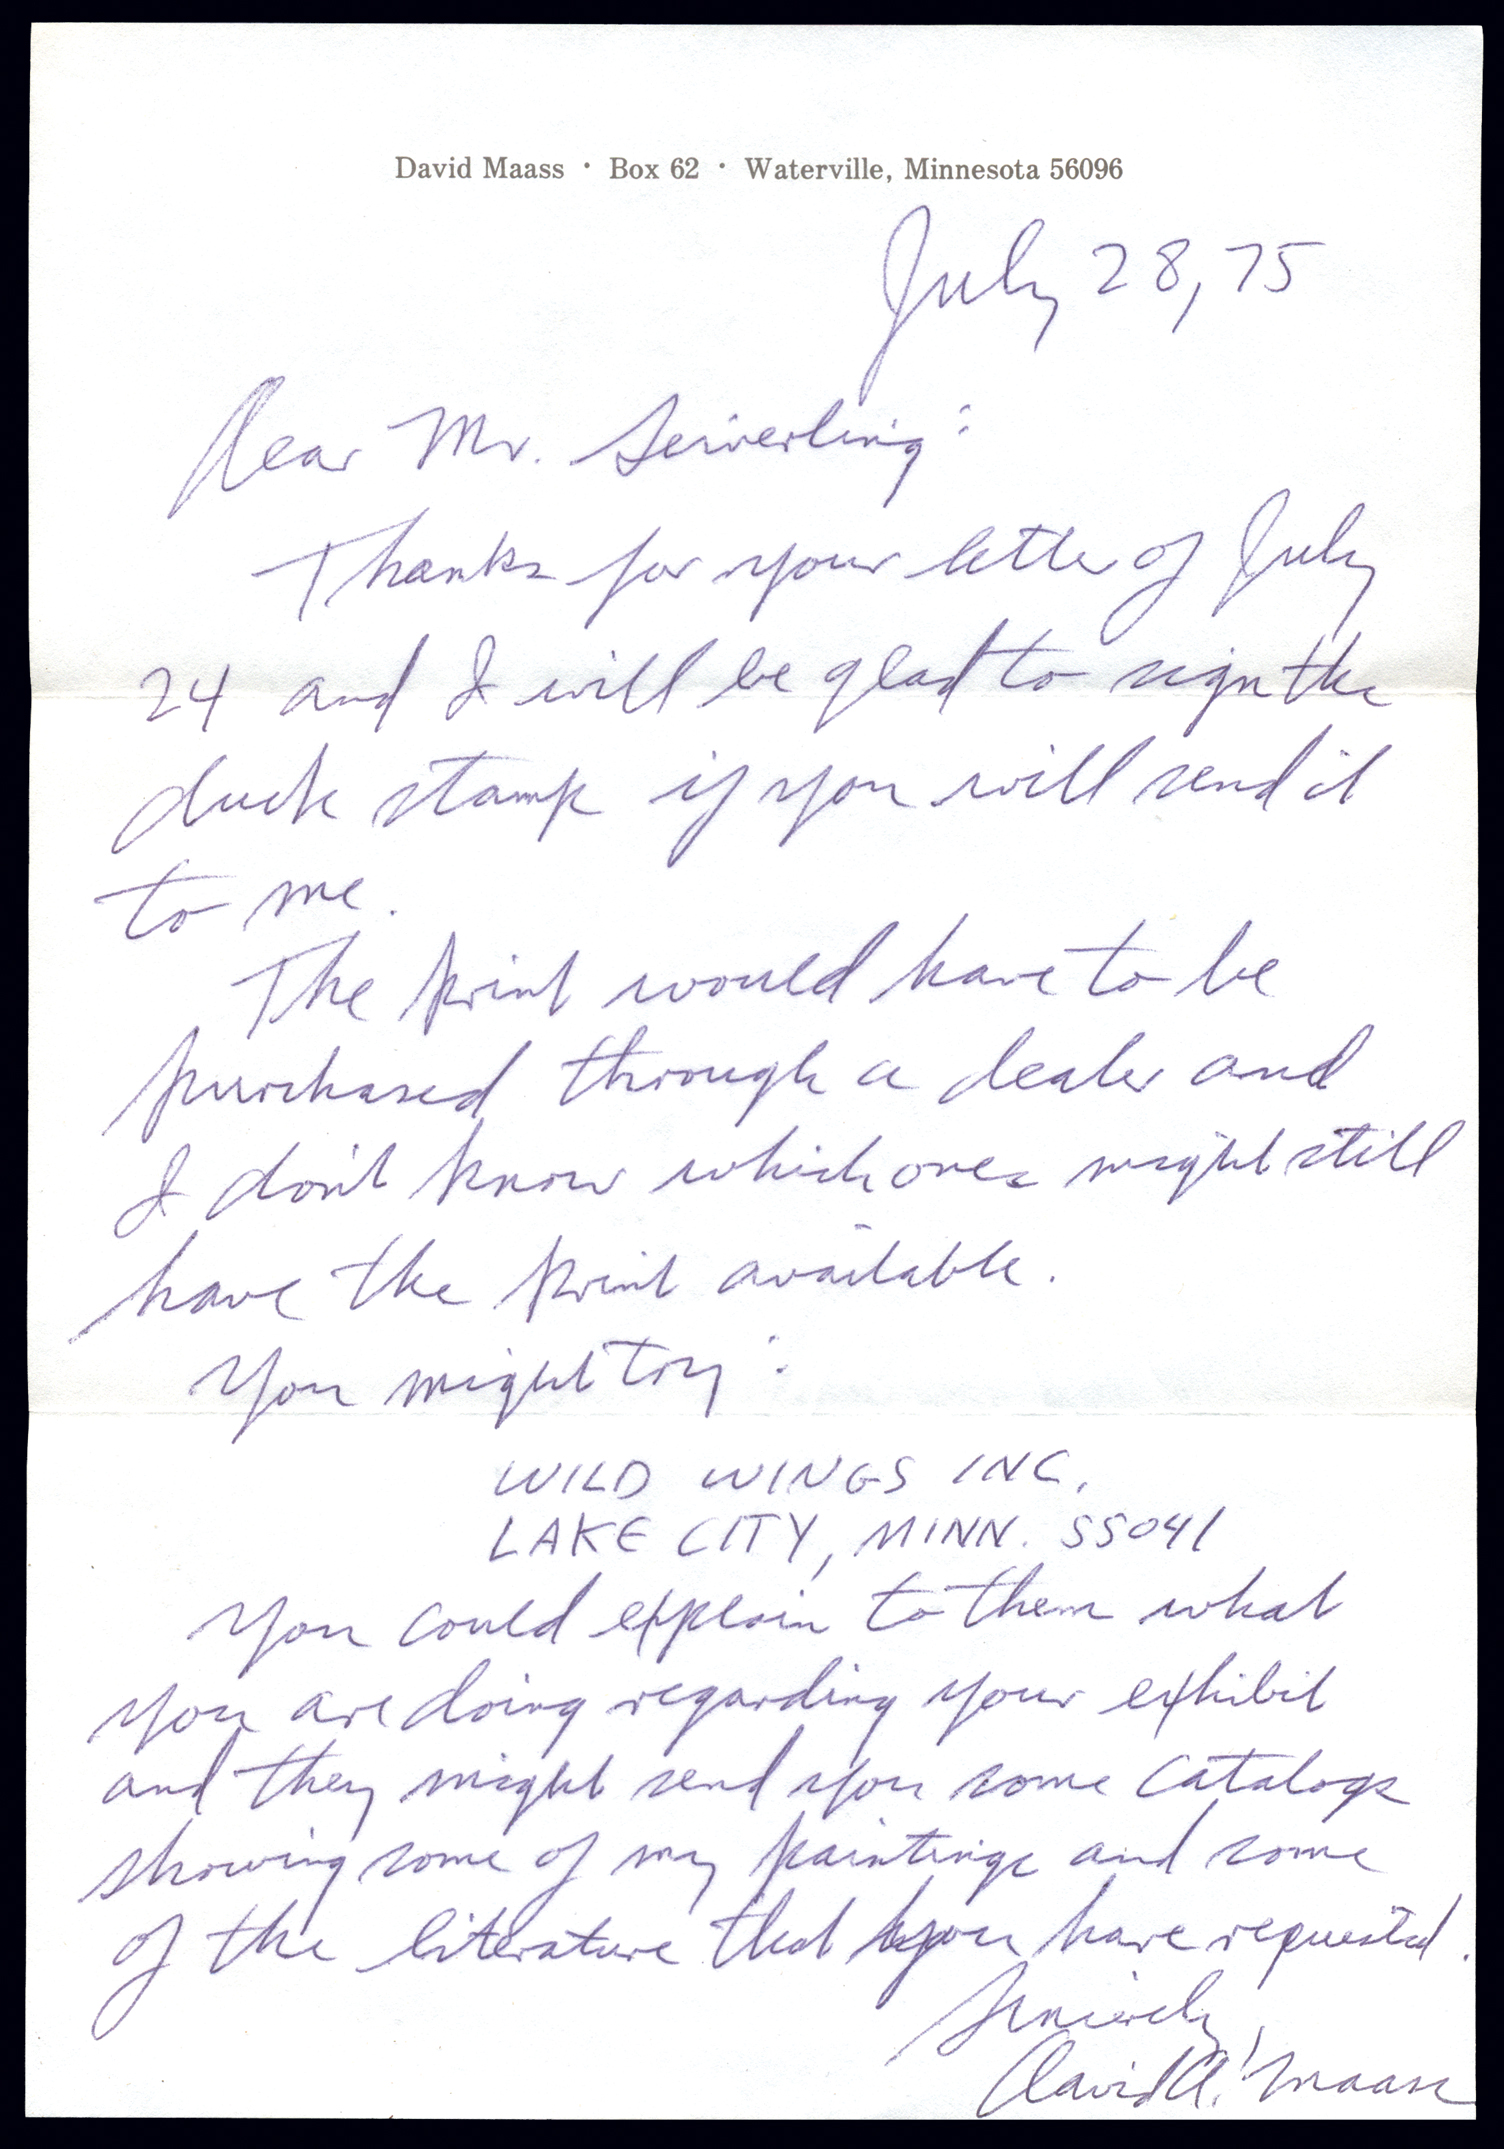 David Maass · Box 62 · Waterville, Minnesota 56096
July 28, 75
Dear Mr. Seiverling:
Thanks for your letter of July
24 and I will be glad to sign the
duck stamp if you will send it
to me.
The print would have to be
purchased through a dealer and
I don't know which ones might still
have the print available.
You might try:
WILD WINGS INC.
LAKE CITY, MINN. 55041
You could explain to them what
you are doing regarding your exhibit
and they might send you some catalogs
showing some of my paintings and some
of the literature that you have requested.
Sincerely,
David A. Maass